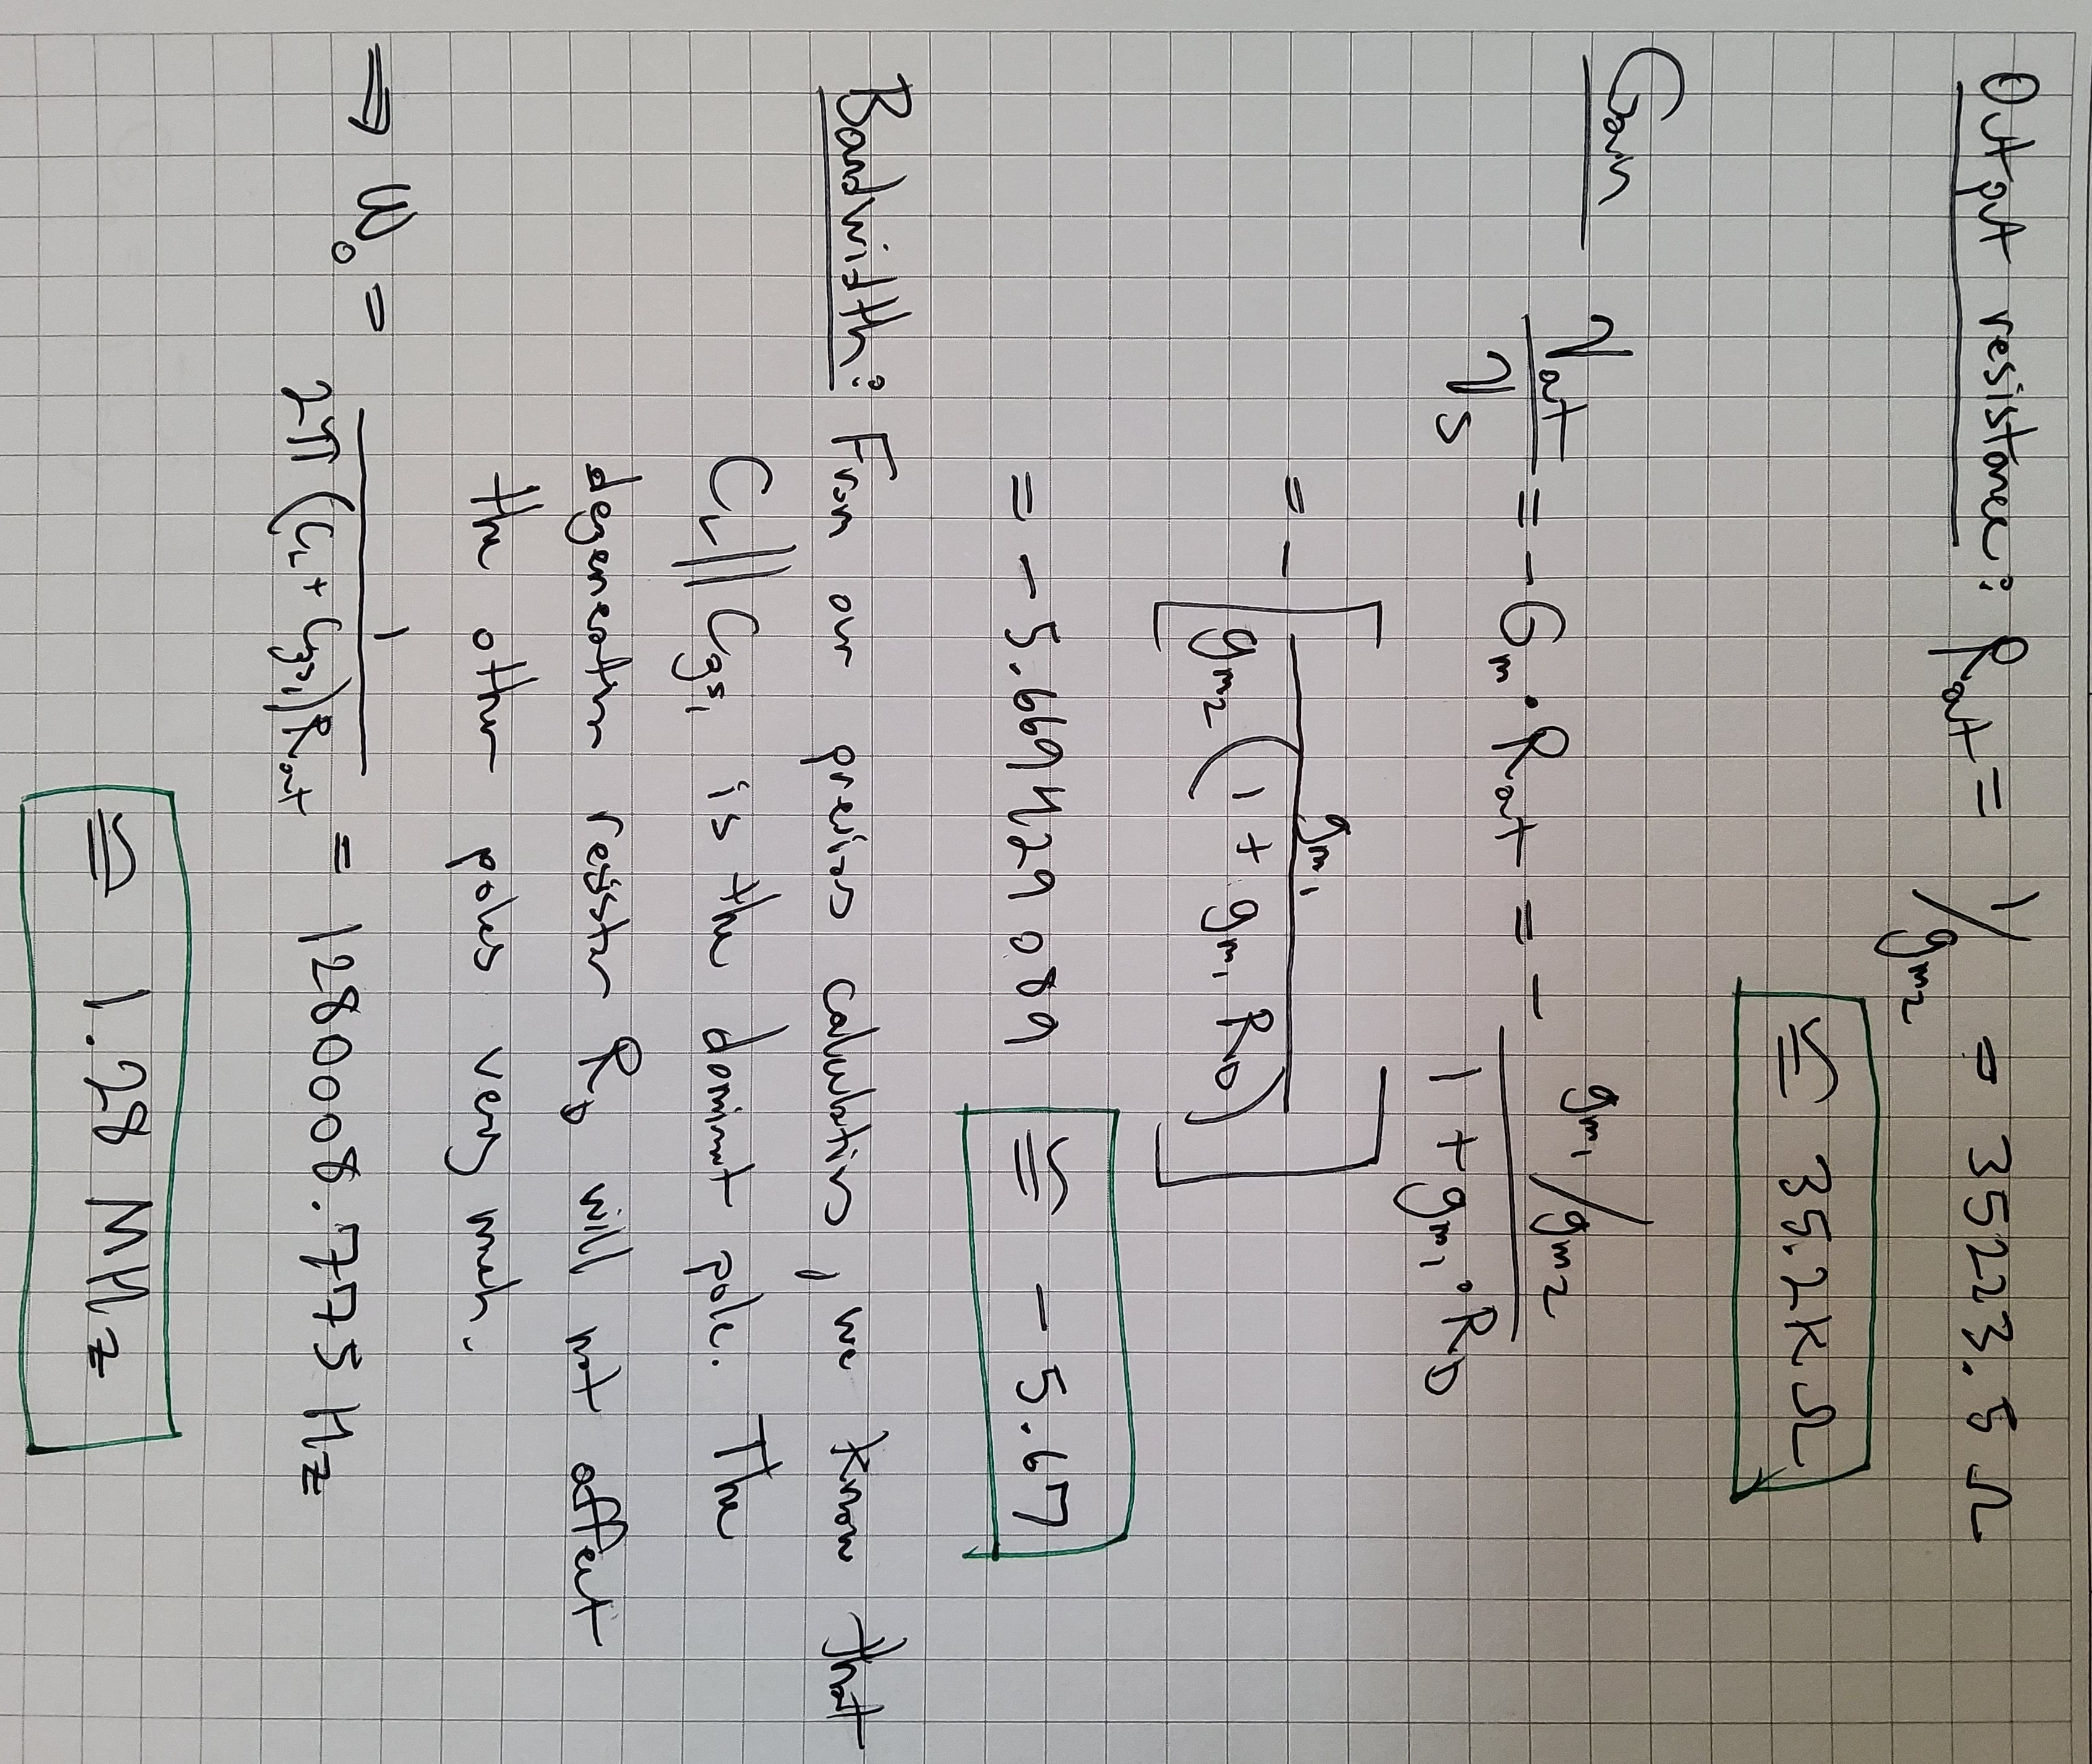 Output resistance: Rout = 1/gm2 = 35223.5 Ω
≅ 35.2K Ω
Gain
Vout/Vs = -Gm · Rout = - (gm1/gm2)/(1 + gm1 · RD)
= - [gm1/(gm2 (1 + gm1 RD))]
= - 5.669429089 ≅ - 5.67
Bandwidth: From our previous calculations, we know that
CL || Cgs1 is the dominant pole. The
degeneration resistor RD will not affect
the other poles very much.
⇒ ω0 = 1/(2π (CL + Cgs1) Rout) = 1280008.775 Hz
≅ 1.28 MHz